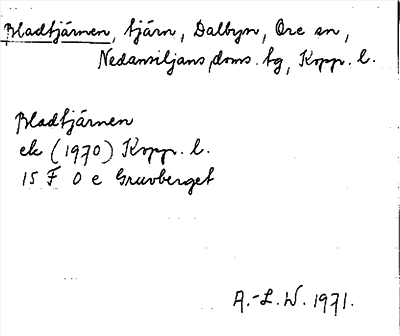 Bladtjärnen, tjärn, Dalbyn, Ore sn,
Nedansiljans doms. tg, Kopp. l.
Bladtjärnen
ek (1970) Kopp. l.
15 F 0 e Gruvberget
A.-L. W. 1971.